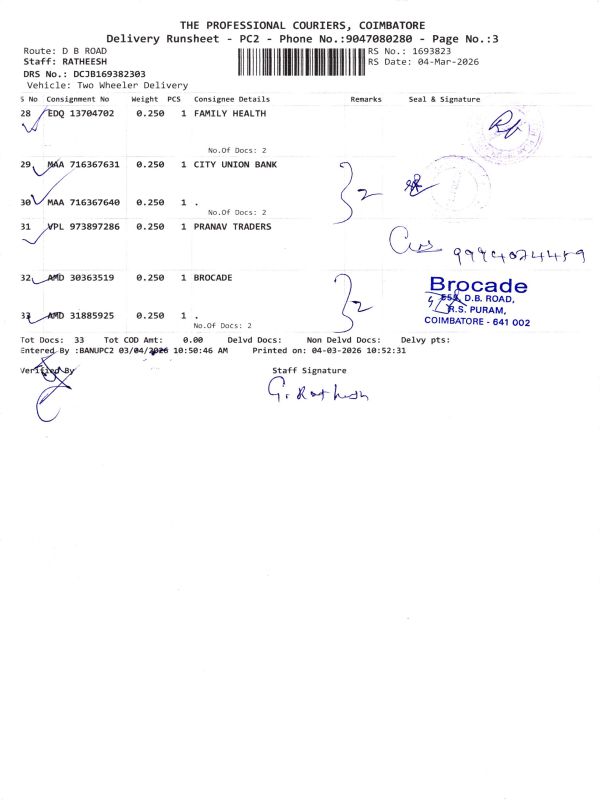 THE PROFESSIONAL COURIERS, COIMBATORE
Delivery Runsheet - PC2 - Phone No.:9047080280 - Page No.:3
Route: D B ROAD
RS No.: 1693823
Staff: RATHEESH
RS Date: 04-Mar-2026
DRS No.: DCJB169382303
Vehicle: Two Wheeler Delivery
S No Consignment No Weight PCS Consignee Details Remarks Seal & Signature
28 EDQ 13704702 0.250 1 FAMILY HEALTH
No.Of Docs: 2
29 MAA 716367631 0.250 1 CITY UNION BANK
2
30 MAA 716367640 0.250 1 .
No.Of Docs: 2
31 VPL 973897286 0.250 1 PRANAV TRADERS
32 AMD 30363519 0.250 1 BROCADE
2
Brocade
D.B. ROAD,
R.S. PURAM,
COIMBATORE - 641 002
33 AMD 31885925 0.250 1 .
No.Of Docs: 2
Tot Docs: 33 Tot COD Amt: 0.00 Delvd Docs: Non Delvd Docs: Delvy pts:
Entered By :BANUPC2 03/04/2026 10:50:46 AM Printed on: 04-03-2026 10:52:31
Verified By Staff Signature
G. Ratheesh